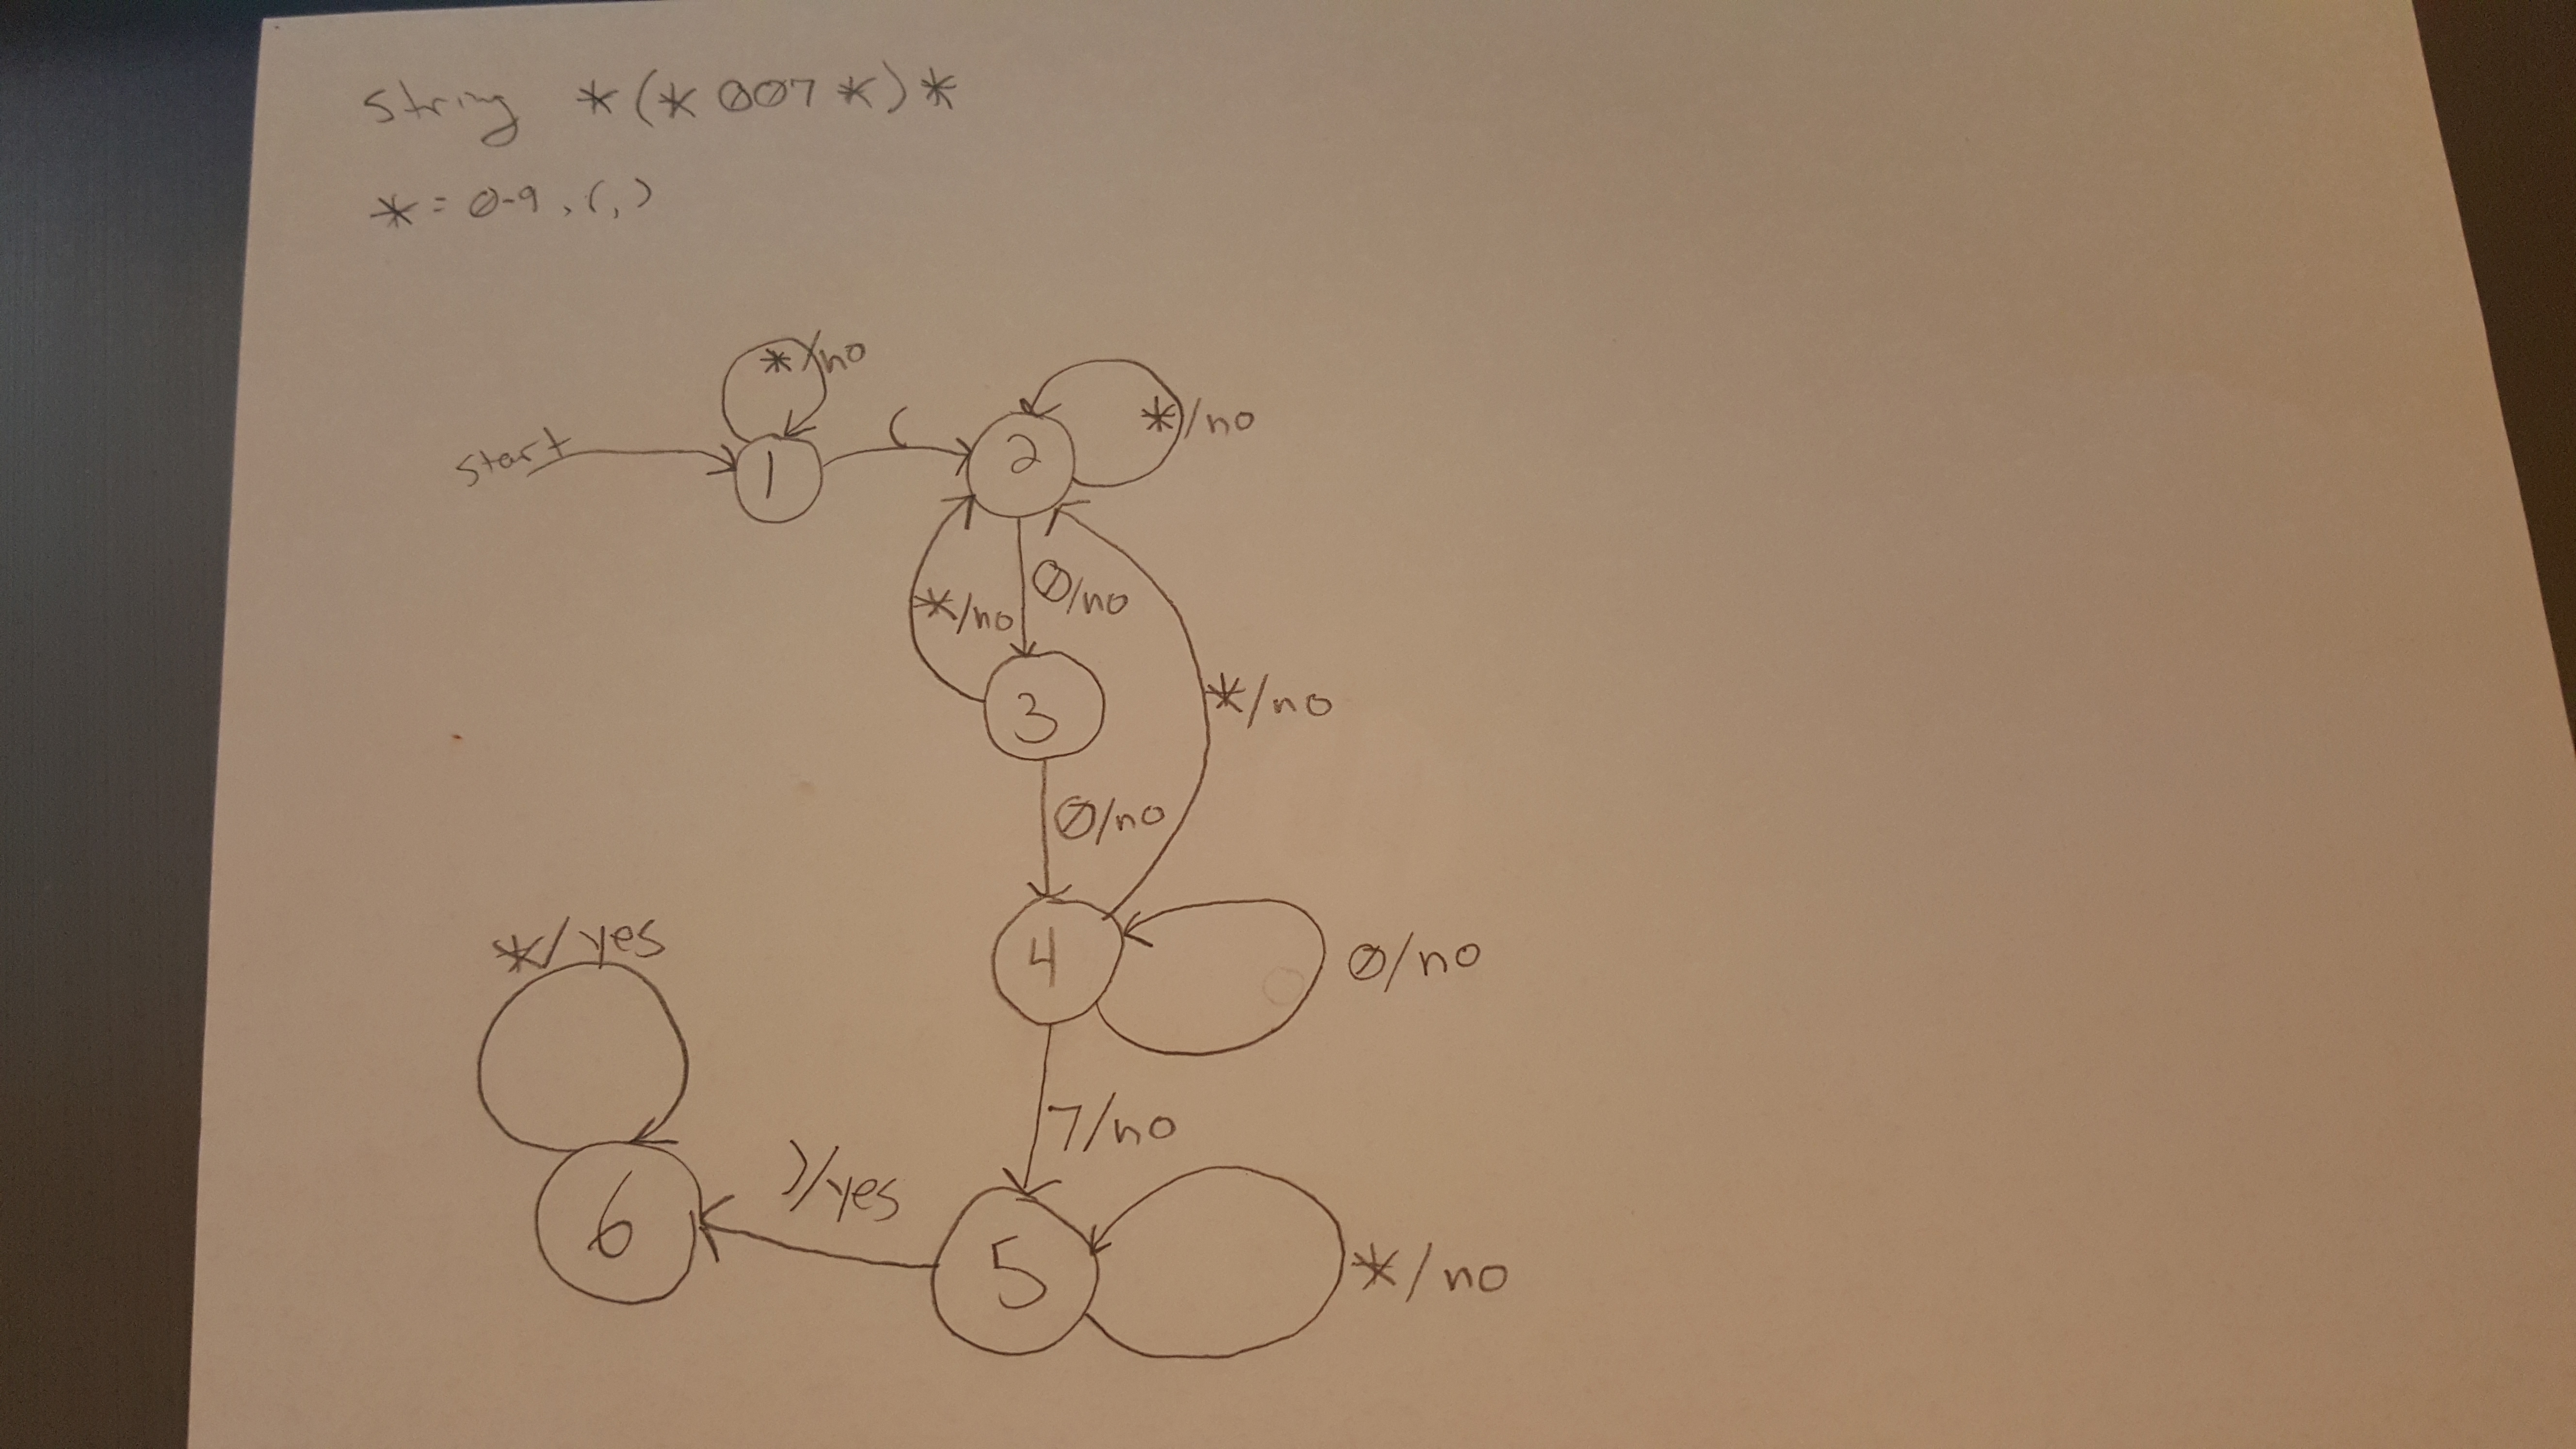 String *(*007*)*
* = 0-9, (, )
*/no
start
1
(
2
*/no
*/no
0/no
3
*/no
0/no
4
0/no
*/yes
7/no
)/yes
6
5
*/no